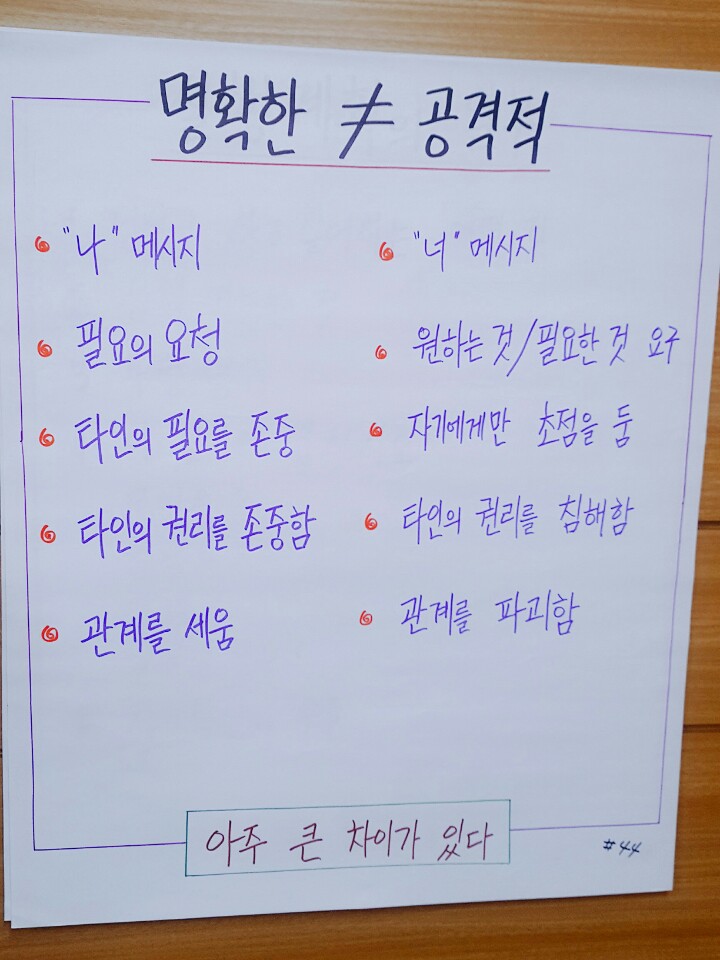 명확한 ≠ 공격적
"나" 메시지
"너" 메시지
필요의 요청
원하는 것/필요한 것 요구
타인의 필요를 존중
자기에게만 초점을 둠
타인의 권리를 존중함
타인의 권리를 침해함
관계를 세움
관계를 파괴함
아주 큰 차이가 있다
#44